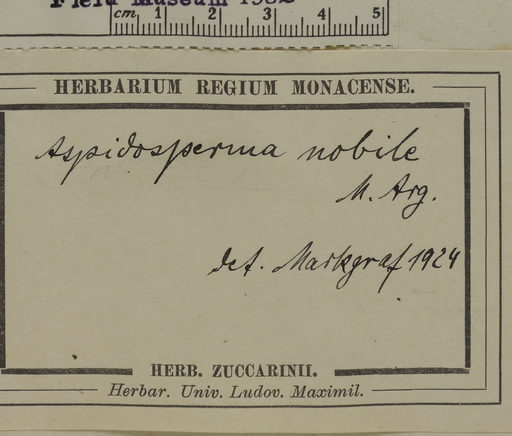 Field Museum
cm 1 2 3 4 5
HERBARIUM REGIUM MONACENSE.
Aspidosperma nobile
M. Arg.
det. Markgraf 1924
HERB. ZUCCARINII.
Herbar. Univ. Ludov. Maximil.